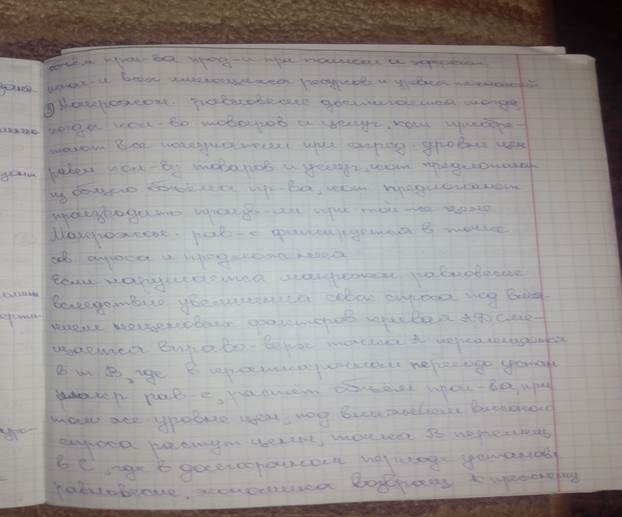 объём прои-ва прод-и при полном и эффектив.
испол-и всех имеющихся ресурсов и уровня технологий
3) Макроэкон. равновесие достигается тогда,
когда кол-во товаров и услуг, кот. приобре-
тают все покупатели при опред. уровне цен
равен кол-ву товаров и услуг, кот. предлагают
из общего объёма пр-ва, кот. предлагают
производить произв-ли при той-же цене
Макроэкон. рав-е фиксируется в точке
сов спроса и предложения
Если нарушается макроэкон равновесие
вследствие увеличения совок спроса под влия-
нием неценовых факторов кривая AD сме-
щается вправо-вверх точка A перемещается
в т B, где в краткосрочном периоде устан
рав-е, растёт объём прои-ва, при
том же уровне цен, под влиянием высокого
спроса растут цены, точка B перемещ
в C, где в долгосрочном периоде установ
равновесие, экономика возвращ к прежнему